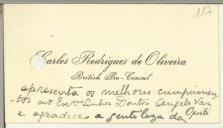 Carlos Rodrigues de Oliveira
British Pro-Consul
apresenta os melhores cumprimen-
tos ao Exmo Senhor Doutor Angelo Vaz
e agradece a gentileza da
Oporto